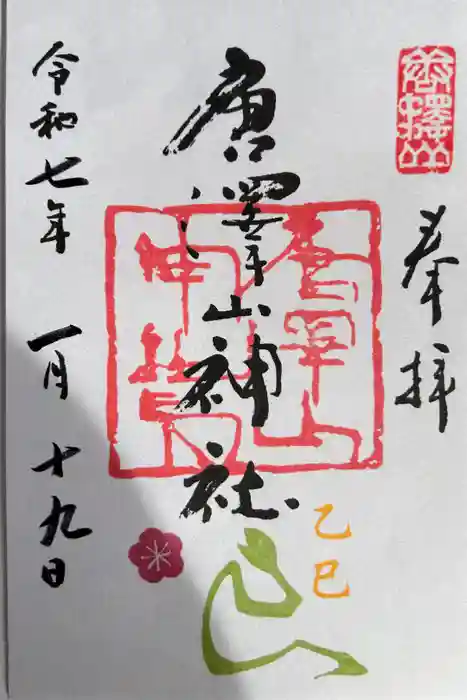 奉拝
唐澤山
唐澤山神社
乙巳
令和七年 一月 十九日